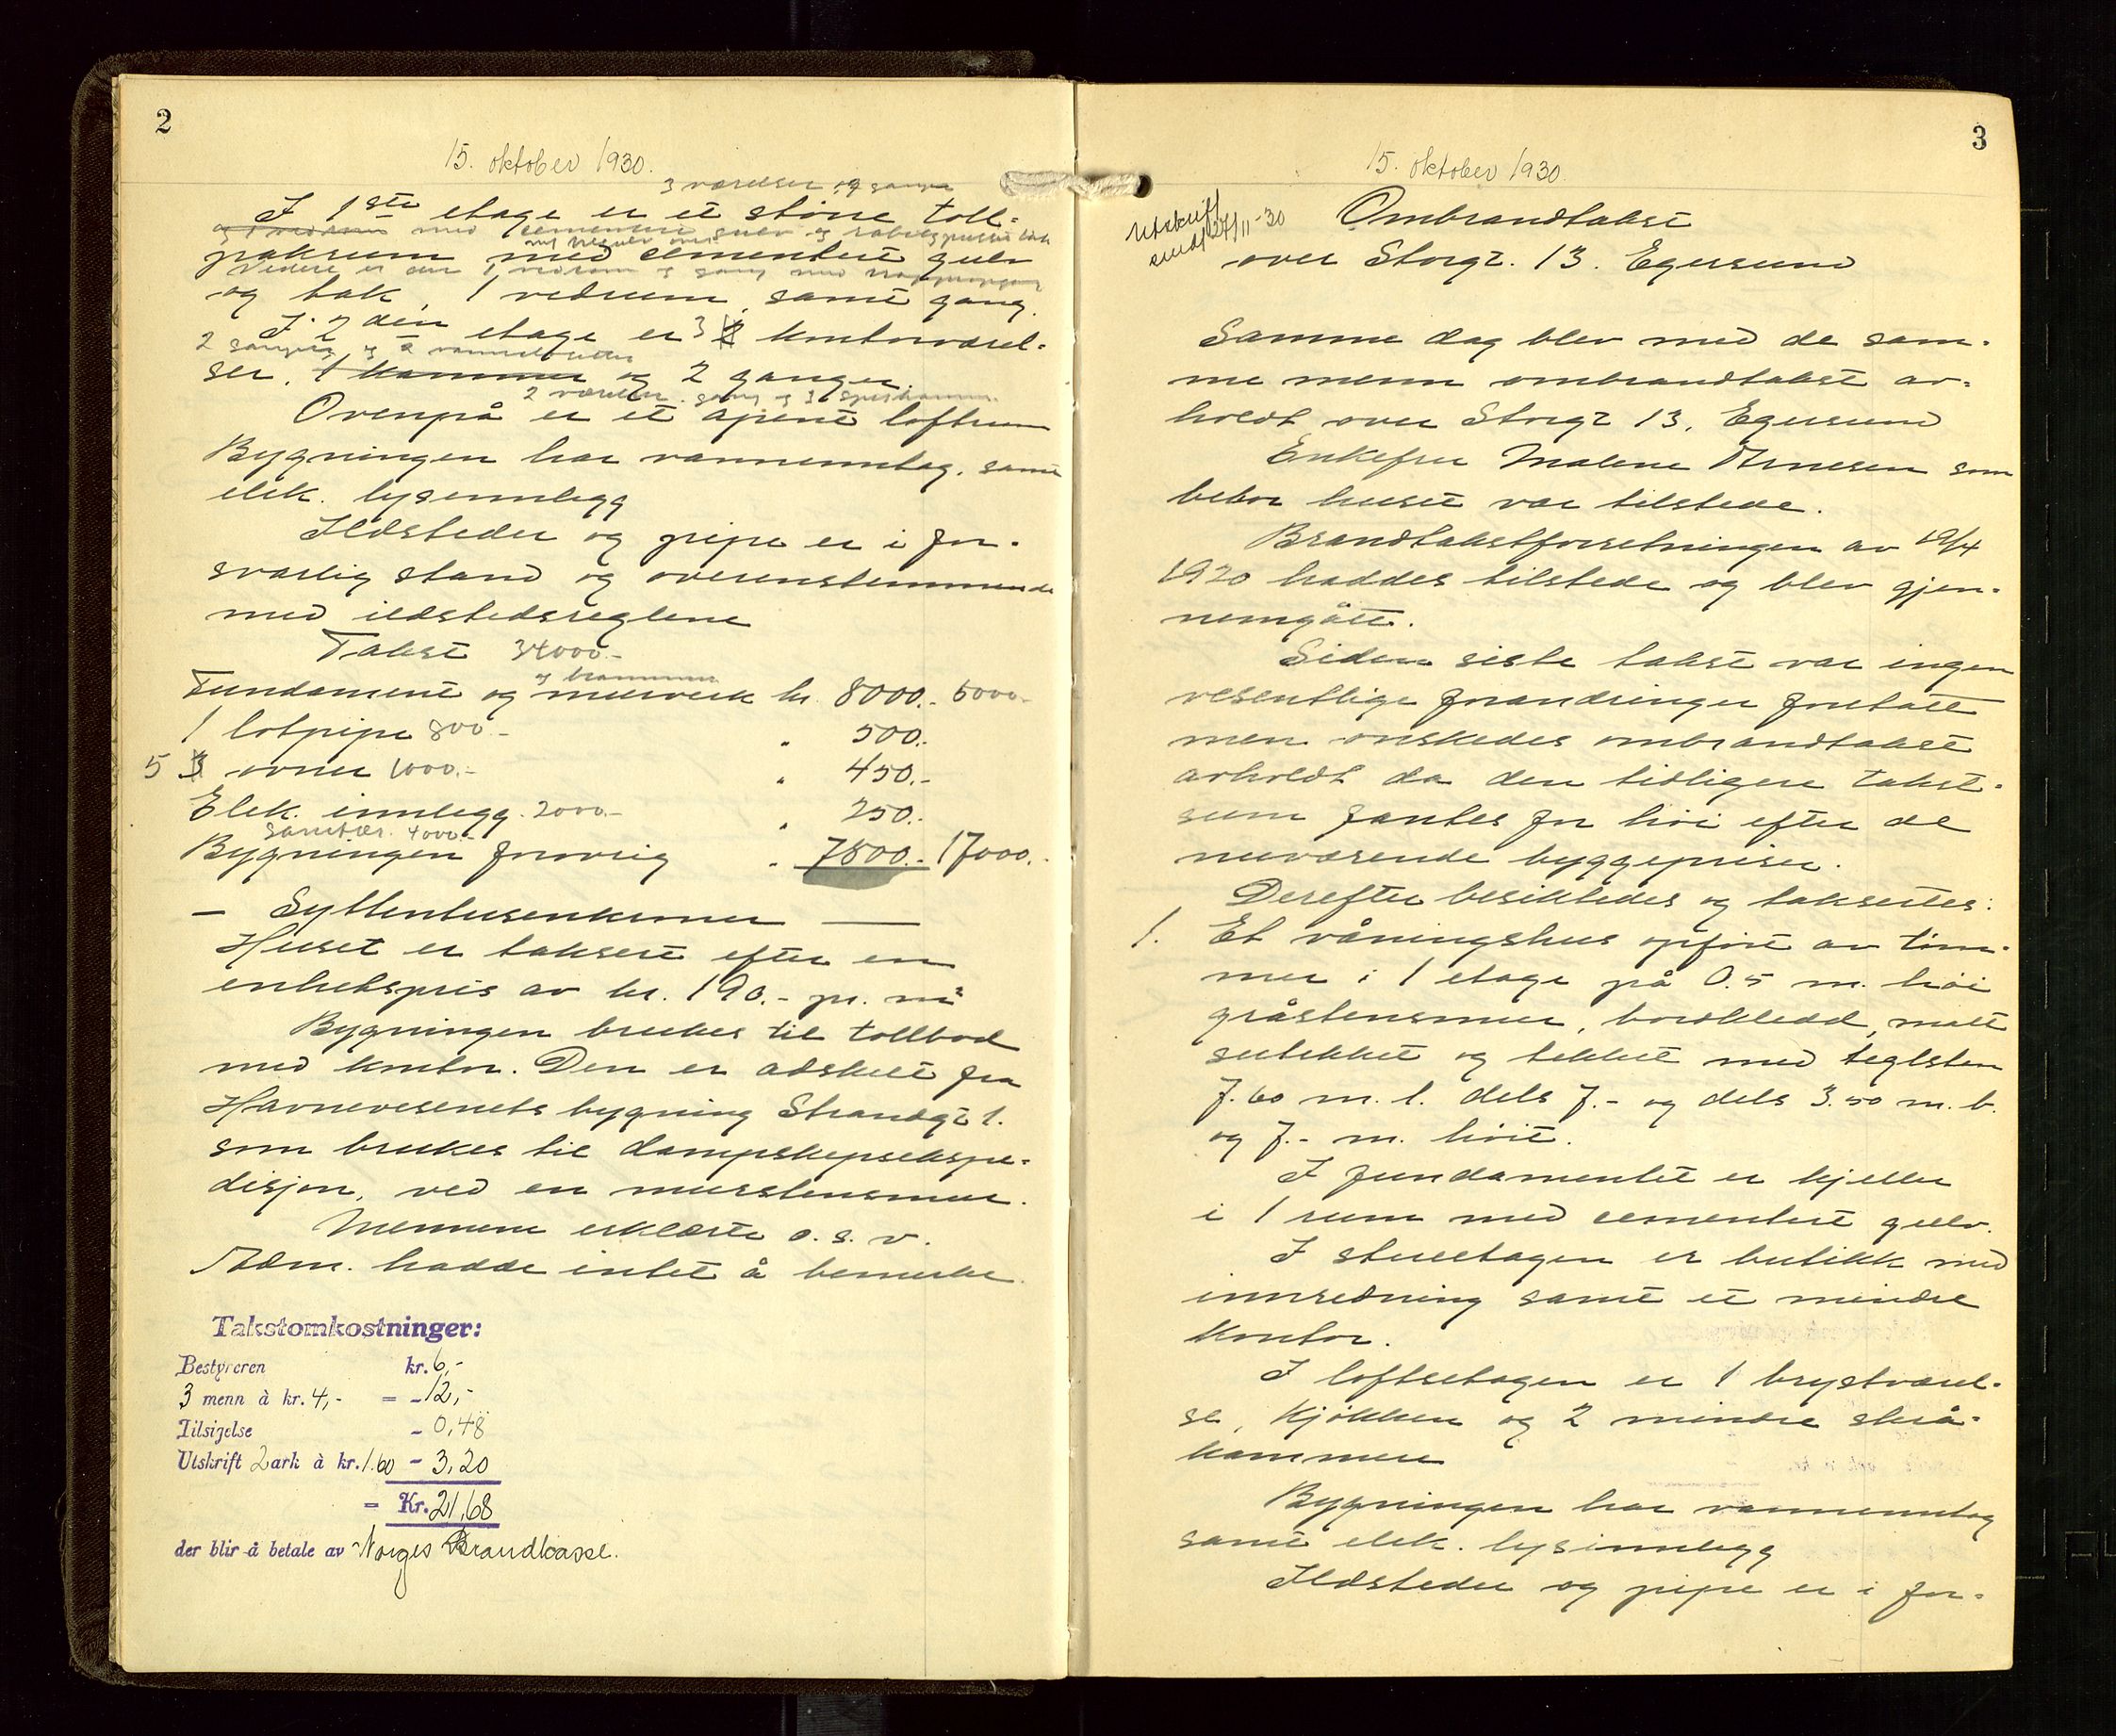 2
15. oktober 1930.
3 værelser og gang
I 1ste etage er et större toll-
og 1 vedrum med cementert gulv og rabitspusset tak
pakrum med cementert gulv
Videre er der 1 vedrom og gang med trappeopgang
og tak, 1 vedrum, samt gang.
I 2den etage er 3 kontorværel-
2 ganger og 2 vannklosetter
ser, 1 kammer og 2 ganger.
2 værelser, gang og 3 spiskammer
Ovenpå er et åpent loftrum
Bygningen har vanninntag, samt
elek. lysinnlegg
Ildsteder og pipe er i for-
svarlig stand og overenstemmende
med ildstedsreglene
Takst 34000.-
og brannmur
Fundament og murverk kr. 8000.- 5000.-
1 lotpipe 800.- " 500.-
5 3 ovner 1000.- " 450.-
Elek. innlegg. 2000.- " 250.-
Sanitær. 4000.-
Bygningen forövrig " 7800.- 17000.-
— Syttentusenkroner —
Huset er taksert efter en
enhetspris av kr. 190.- pr. m²
Bygningen brukes til tollbod
med kontor. Den er adskilt fra
Havnevesenets bygning Strandgt 1.
som brukes til dampskipsekspe-
disjon, ved en murstensmur.
Mennene erklærte o. s. v.
Adm. hadde intet å bemerke.
Takstomkostninger:
Bestyreren kr. 6,-
3 menn à kr. 4,- = - 12,-
Tilsigelse - 0,48
Utskrift 2 ark à kr. 1.60 - 3,20
= Kr. 21,68
der blir å betale av Norges Brandkasse.
3
15. oktober 1930.
Utskrift
sendt 27/11-30
Ombrandtakst
over Storgt. 13. Egersund
Samme dag blev med de sam-
me menn ombrandtakst av-
holdt over Storgt 13, Egersund
Enkefru Malene Arnesen som
bebor huset var tilstede.
Brandtakstforretningen av 19/4
1920 haddes tilstede og blev gjen-
nemgått.
Siden siste takst var ingen
vesentlige forandringer foretatt
men önskedes ombrandtakst
avholdt da den tidligere takst-
sum fantes for höi efter de
nuværende byggepriser.
Derefter besiktedes og taksertes:
1. Et våningshus opfört av töm-
mer i 1 etage på 0.5 m. höi
gråstensmur, bordkledd, malt
sutekket og tekket med teglsten
7.60 m. l. dels 7.- og dels 3.50 m. b.
og 7.- m. höit.
I fundamentet er kjeller
i 1 rum med cementert gulv.
I stueetagen er butikk med
innredning samt et mindre
kontor.
I loftsetagen er 1 brystværel-
se, kjökken og 2 mindre skrå-
kammere
Bygningen har vanninntag
samt elek. lysinnlegg
Ildsteder og pipe er i for-